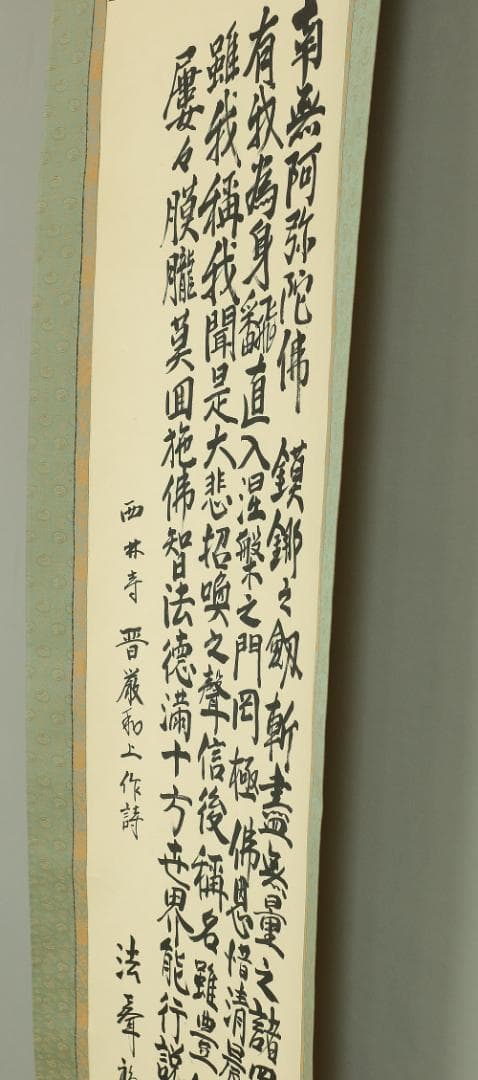 南無阿弥陀佛 鏌鋣之劔斬盡無量之諸
有我為身翻直入涅槃之門罔極佛恩惜清晨
雖我稱我聞是大悲招喚之聲信後稱名雖豊
屢々朦朧莫回施佛智法德滿十方世界能行説
西林寺 晋厳和上作詩
法聲